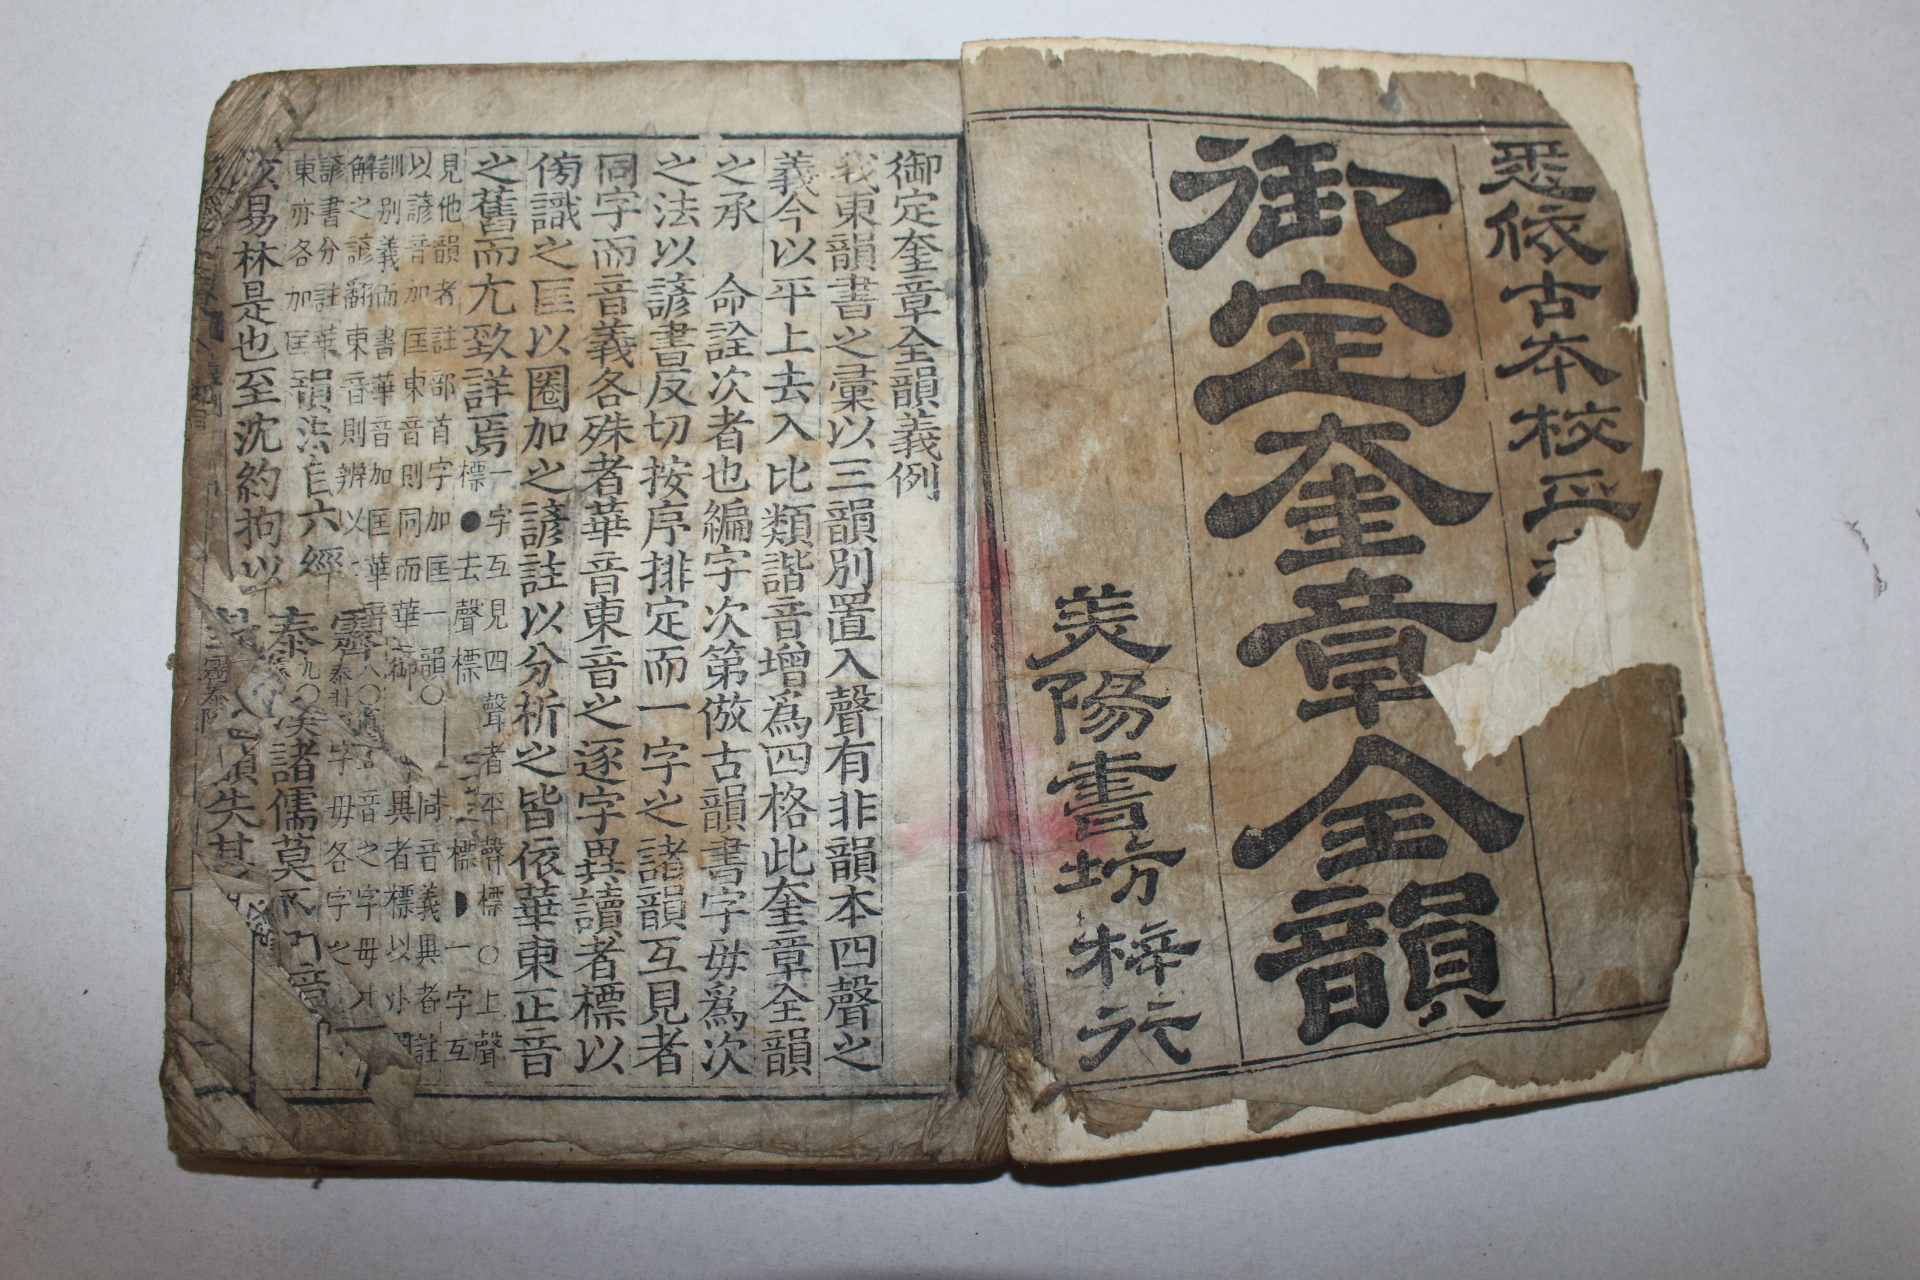 悉依古本校正
御定奎章全韻
美陽書坊梓行
御定奎章全韻義例
我東韻書之彙以三韻別置入聲有非韻本四聲之
義今以平上去入比類諧音增爲四格此奎章全韻
之承 命詮次者也編字次第倣古韻書字毋爲次
之法以諺書反切按序排定而一字之諸韻互見者
同字而音義各殊者華音東音之逐字異讀者標以
傍識之匡以圈加之諺註以分析之皆依華東正音
之舊而尤致詳焉
一字互見四聲者平聲標○上聲
標●去聲標 標◗一字互
見他韻者註部首字加匡一韻○ 同音義異者註
以諺音加匡東音則同而華 異者標以小圈
訓別義而書華音加匡華音 音之字毋
解之諺翻東音則辨以 字毋各字之
諺書分註華
東亦各加匡
韻法 六經 漢諸儒莫 音
易林是也至沈約拘以 失其